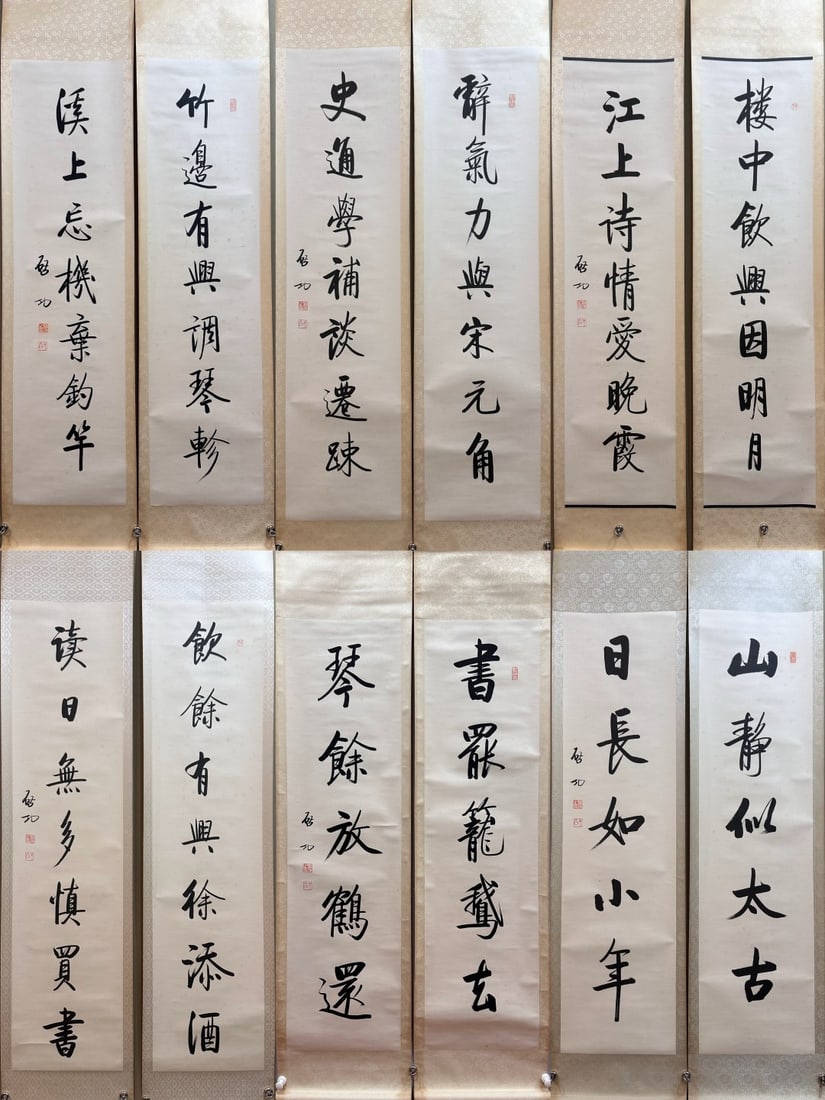 楼中飲興因明月
江上诗情愛晚霞
启功
辭氣力與宋元角
史通學補谈遷踈
启功
竹邊有興调琴軫
溪上忘機棄釣竿
启功
山靜似太古
日長如小年
启功
書罷籠鵞去
琴餘放鶴還
启功
飲餘有興徐添酒
读日無多慎買書
启功